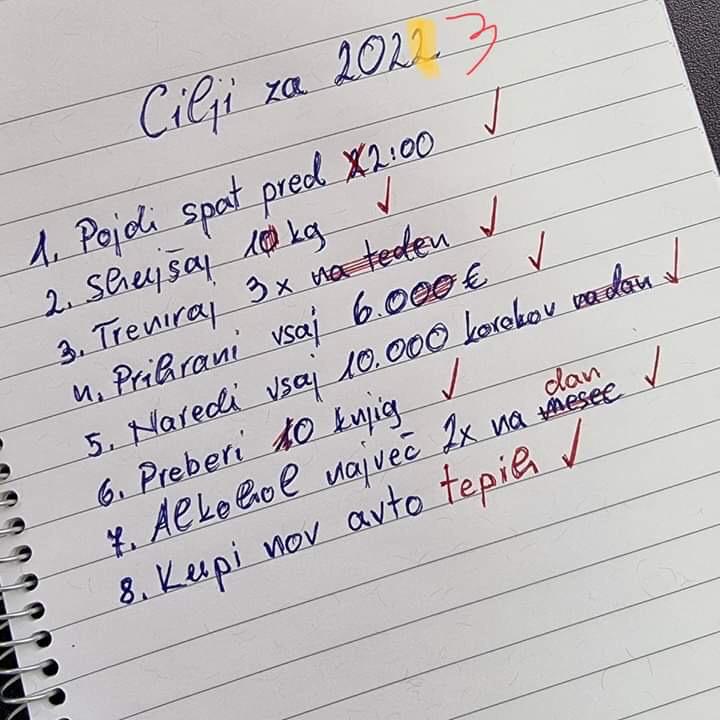 Cilji za 2022 3
1. Pojdi spat pred 22:00 ✓
2. Shujšaj 10 kg ✓
3. Treniraj 3x na teden ✓
4. Prihrani vsaj 6.000 € ✓
5. Naredi vsaj 10.000 korakov na dan ✓
6. Preberi 10 knjig ✓
dan
7. Alkohol največ 2x na mesec ✓
8. Kupi nov avto tepih ✓